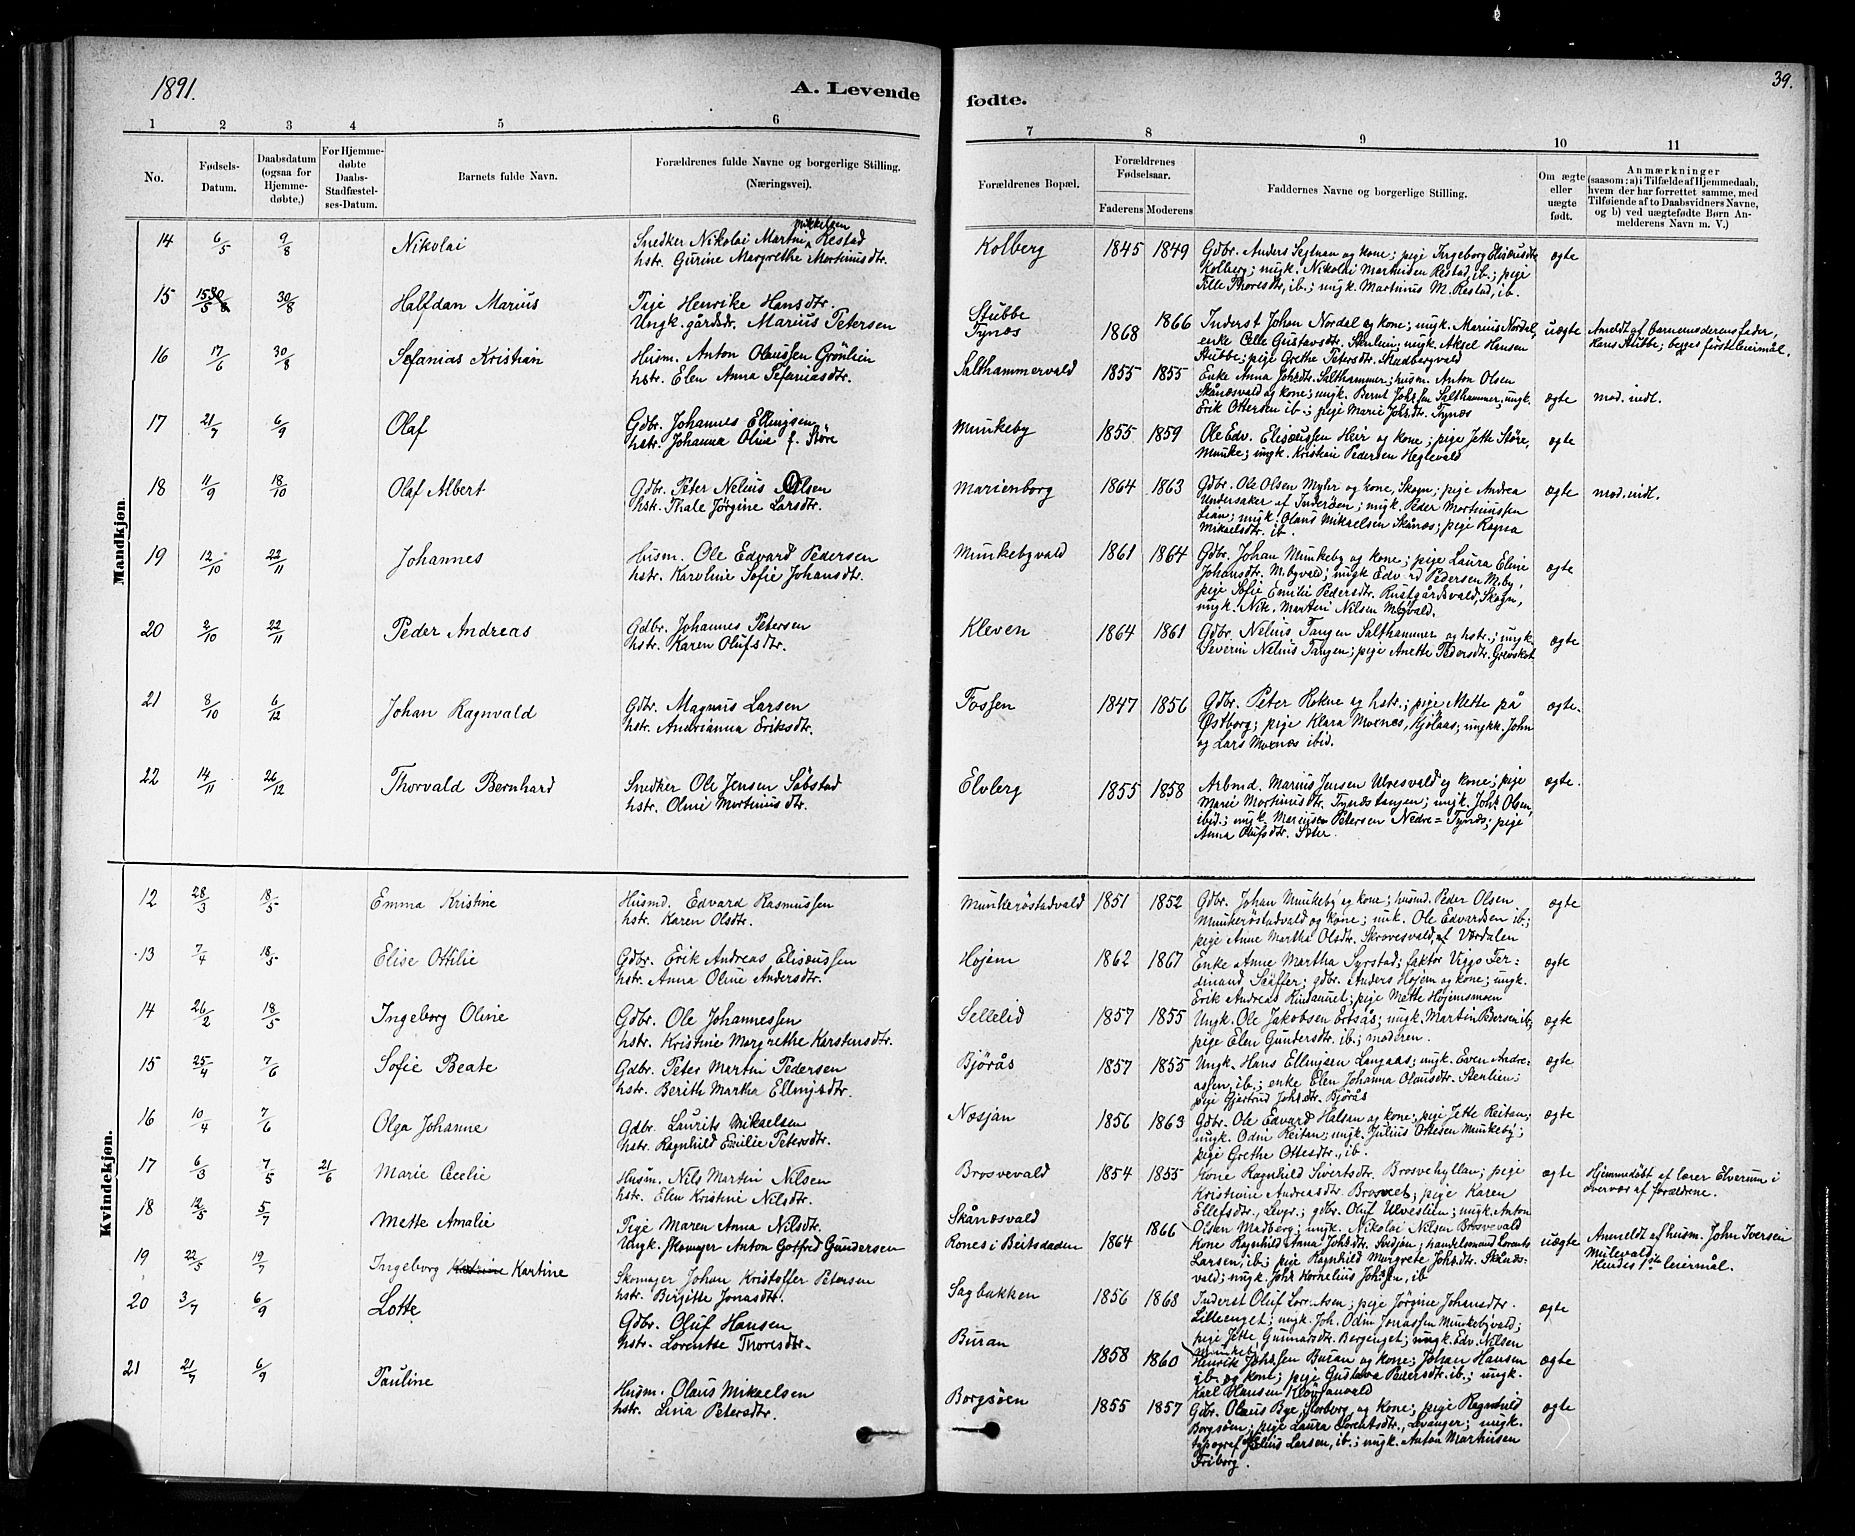 1891.
A. Levende
fødte.
39.
1 2 3 4 5 6 7 8 9 10 11
No.
Fødsels-
Datum.
Daabsdatum
(ogsaa for
Hjemme-
døbte.)
For Hjemme-
døbte
Daabs-
Stadfæstel-
ses-Datum.
Barnets fulde Navn.
Forældrenes fulde Navne og borgerlige Stilling.
(Næringsvei).
Forældrenes Bopæl.
Forældrenes
Fødselsaar.
Faderens Moderens
Faddernes Navne og borgerlige Stilling.
Om ægte
eller
uægte
født.
Anmærkninger
(saasom: a) i Tilfælde af Hjemmedaab,
hvem der har forrettet samme, med
Tilføiende af to Daabsvidners Navne,
og b) ved uægtefødte Børn An-
melderens Navn m. V.)
Mandkjøn.
14 6/5 9/8 Nikolai
Snedker Nikolai Martin Mikkelsen Restad
hstr. Gurine Margrethe Mortinusdtr.
Kolberg 1845 1849
Gdbr. Anders Segtnan og kone; pige Ingeborg Elisæusdtr.
Kolberg; ungk. Nikolai Martinsen Restad, ib.; pige
Tille Thoresdtr., ib.; ungk. Martinus M. Restad, ib.
ægte
15 15/5 30/8 Halfdan Marius
Pige Henrike Hansdtr.
Ungk. gårdbr. Marius Petersen
Stubbe
Tynæs
1868 1866
Inderst Johan Nordal og kone; ungk. Marius Nordal,
enke Gustavsdtr. ungk. Aksel Hansen
Stubbe; pige Grethe Petersdtr. Stadbergvald
uægte
Anmeldt af barnemoderens fader,
Hans Stubbe; begges første leiermål.
16 17/6 30/8 Sefanias Kristian
Husm. Anton Olaussen Grønlien
hstr. Elen Anna Sefaniasdtr.
Salthammervald 1855 1855
Enke Anna Johsdtr. Salthammer; husm. Anton Olsen
Skånæsvald og kone; ungk. Bernt Johsen Salthammer; ungk.
Erik Ottersen ib.; pige Marie Johsdtr. Tynæs
ægte mod. indl.
17 21/7 6/9 Olaf
Gdbr. Johannes Ellingsen
hstr. Johanna Oline f. Støre
Munkeby 1855 1859
Ole Edv. Elisæussen Heir og kone; pige Jette Støre,
Munke; ungk. Kristian Pedersen Heglevald
ægte
18 11/9 18/10 Olaf Albert
Gdbr. Peter Nelius Olsen
hstr. Thale Jørgine Larsdtr.
Marienborg 1864 1863
Gdbr. Ole Olsen Myhr og kone, Skogn; pige Andrea
Undersaker af Inderøen; ungk. Peder Mortinussen
Lian; ungk. Olaus Mikaelsen Skånæs; pige Ragna
Mikaelsdtr. ib.
ægte mod. indl.
19 12/10 22/11 Johannes
Husm. Ole Edvard Pedersen
hstr. Karoline Sofie Johansdtr.
Munkebyvald 1861 1864
Gdbr. Johan Munkeby og kone; pige Laura Eline
Johansdtr. M.byvald; ungk. Edvard Pedersen M.by,
pige Sofie Emilie Pedersdtr. Rustgårdsvald, Skogn,
ungk. Nik. Martin Nilsen M.byvald.
ægte
20 2/10 22/11 Peder Andreas
Gdbr. Johannes Petersen
hstr. Karen Olufsdtr.
Kleven 1864 1861
Gdbr. Nelius Tangen Salthammer og hstr.; ungk.
Severin Nelius Tangen; pige Anette Pedersdtr. Grevskot
ægte
21 8/10 6/12 Johan Ragnvald
Gdbr. Magnus Larsen
hstr. Andrianna Eriksdtr.
Fossen 1847 1856
Gdbr. Peter Rokne og hstr.; pige Mette på
Østborg; pige Klara Moxnes, Kjølaas; ungkk. John
og Lars Moxnes ibid.
ægte.
22 14/11 26/12 Thorvald Bernhard
Snedker Ole Jensen Søbstad
hstr. Oline Mortinusdtr.
Elvberg 1855 1858
Arbmd. Marius Jensen Ulvesvald og kone; pige
Marie Mortinusdtr. Tynæstangen; ungk. Johs. Olsen,
ibid.; ungk. Mariusen Petersen Nedre=Tynæs; pige
Anna Olufsdtr. Seter.
ægte.
Kvindekjøn.
12 28/3 18/5 Emma Kristine
Husmd. Edvard Rasmussen
hstr. Karen Olsdtr.
Munkerøstadvald 1851 1852
Gdbr. Johan Munkeby og kone; husmd. Peder Olsen
Munkerøstadvald og kone; ungk. Ole Edvardsen ib.;
pige Anne Martha Olsdtr. Skrovesvald, af Værdalen
ægte
13 7/4 18/5 Elise Ottilie
Gdbr. Erik Andreas Elisæussen
hstr. Anna Oline Andersdtr.
Højem 1862 1867
Enke Anne Martha Syrstad; faktor Viggo Fer-
dinand Schäffer; gdbr. Anders Højem og kone; ungk.
Erik Andreas Rindanvet; pige Mette Højemsmoen
ægte
14 26/2 18/5 Ingeborg Oline
Gdbr. Ole Johannessen
hstr. Kristine Margrethe Karstensdtr.
Sellelid 1857 1855
Ungk. Ole Jakobsen Ertsås; ungk. Martin Bersen ib;
pige Elen Guntersdtr. ib.; moderen.
ægte
15 25/4 7/6 Sofie Beate
Gdbr. Peter Martin Pedersen
hstr. Berith Martha Ellingsdtr.
Bjørås 1857 1855
Ungk. Hans Ellingsen Langaas; ungk. Even Andre-
assen, ib.; enke Elen Johanna Olausdtr. Stenlien;
pige Gjertrud Johsdtr. Bjørås
ægte
16 10/4 7/6 Olga Johanne
Gdbr. Laurits Mikaelsen
hstr. Ragnhild Emilie Petersdtr.
Næsjan 1856 1863
Gdbr. Ole Edvard Halsan og kone; pige Jette Reitan;
ungk. Odin Reitan; ungk. Julius Ottesen Munkeby;
pige Grethe Ottesdtr., ib.
ægte
17 6/3 7/5 21/6 Marie Cecelie
Husm. Nils Martin Nilsen
hstr. Elen Kristine Nilsdtr.
Brosvevald 1854 1855
Kone Ragnhild Sivertsdtr. Brosvehyllan; pige
Kristiane Andreasdtr. Brosveet; pige Karen
Ellefsdtr., Lvgr.; gdbr. Oluf Ulveslien; ungk. Anton
Olsen Madberg; ungk. Nikolai Nilsen Brosvevald
ægte
Hjemmedøbt af lærer Elverum i
overvær af forældrene.
18 12/5 5/7 Mette Amalie
Pige Maren Anna Nilsdtr.
Ungk. skomager Anton Gotfred Gundersen
Skånæsvald
Rones i Beitstaden
1864 1866
Kone Ragnhild Anna Johsdtr. Svedjan; handelsmand Lorents
Larsen, ib.; pige Ragnhild Margrete Johsdtr. Skånæs-
vald; ungk. Johs Kornelius Johssen, ib
uægte
Anmeldt af husm. John Iversen
Mulevald;
Hendes 1ste leiermål.
19 22/5 19/7 Ingeborg Kartine
Skomager Johan Kristoffer Petersen
hstr. Birgitte Jonasdtr.
Sagbakken 1856 1868
Inderst Oluf pige Jørgine Johansdtr.
Lilleenget; ungk. Joh. Odin Jonassen Munkebyvald;
pige Jette Gunnarsdtr. Bergenget; ungk. Edv. Nilsen
Munkeby
ægte
20 3/7 6/9 Lotte
Gdbr. Oluf Hansen
hstr. Lorentse Thoresdtr.
Buran 1858 1860
Henrik Johssen Buran og kone; Johan Hansen
ib. og kone; pige Gustava Pedersdtr. ib.; ungk.
Karl Hansen Kløvjanvald
ægte
21 21/7 6/9 Pauline
Husm. Olaus Mikaelsen
hstr. Lina Petersdtr.
Borgsøen 1855 1857
Gdbr. Olaus Bye, Norborg, og kone; pige Ragnhild
Borgsøen; pige Laura Lorentsdtr., Levanger; ungk.
typograf Julius Larsen, ib.; ungk. Anton Martinsen
Friborg.
ægte